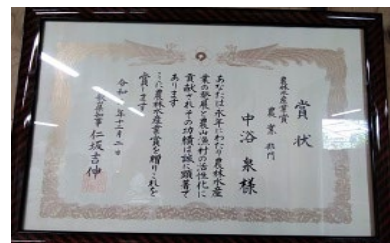 賞状
農林水産業賞
農業部門
中谷泉様
あなたは永年にわたり農林水産
業の発展と農山漁村の活性化に
貢献されその功績は誠に顕著で
あります
ここに農林水産業賞を贈りこれを
賞します
令和 年十二月二日
県知事 仁坂吉伸